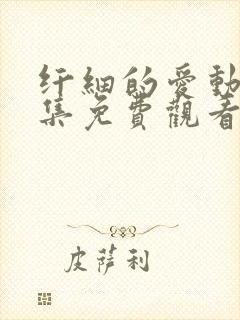 纤細的愛動
集免費觀看
皮薩利